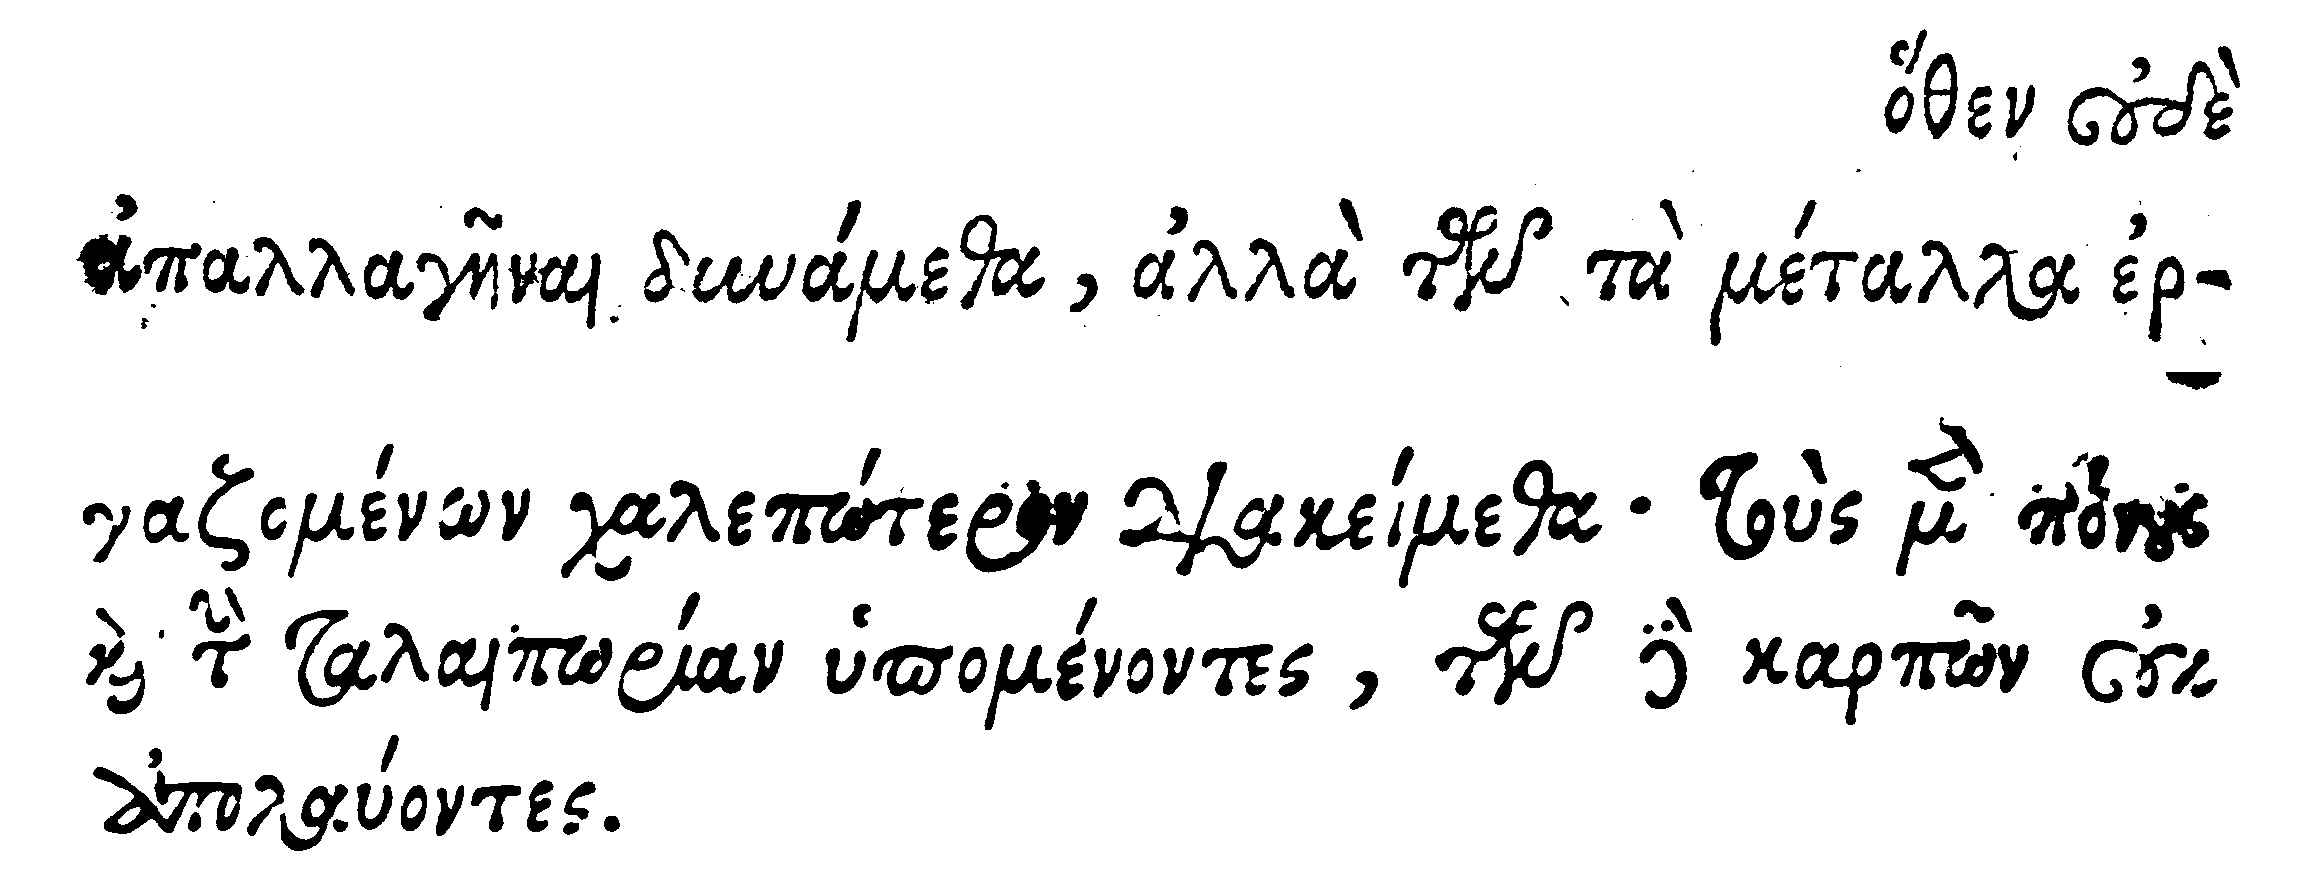 ὅθεν οὐδὲ
ἀπαλλαγῆναι δυνάμεθα, ἀλλὰ τῶν τὰ μέταλλα ἐρ-
γαζομένων χαλεπώτερον διακείμεθα· τοὺς μὲν πόνους
καὶ τὴν ταλαιπωρίαν ὑπομένοντες, τῶν δὲ καρπῶν οὐκ
ἀπολαύοντες.